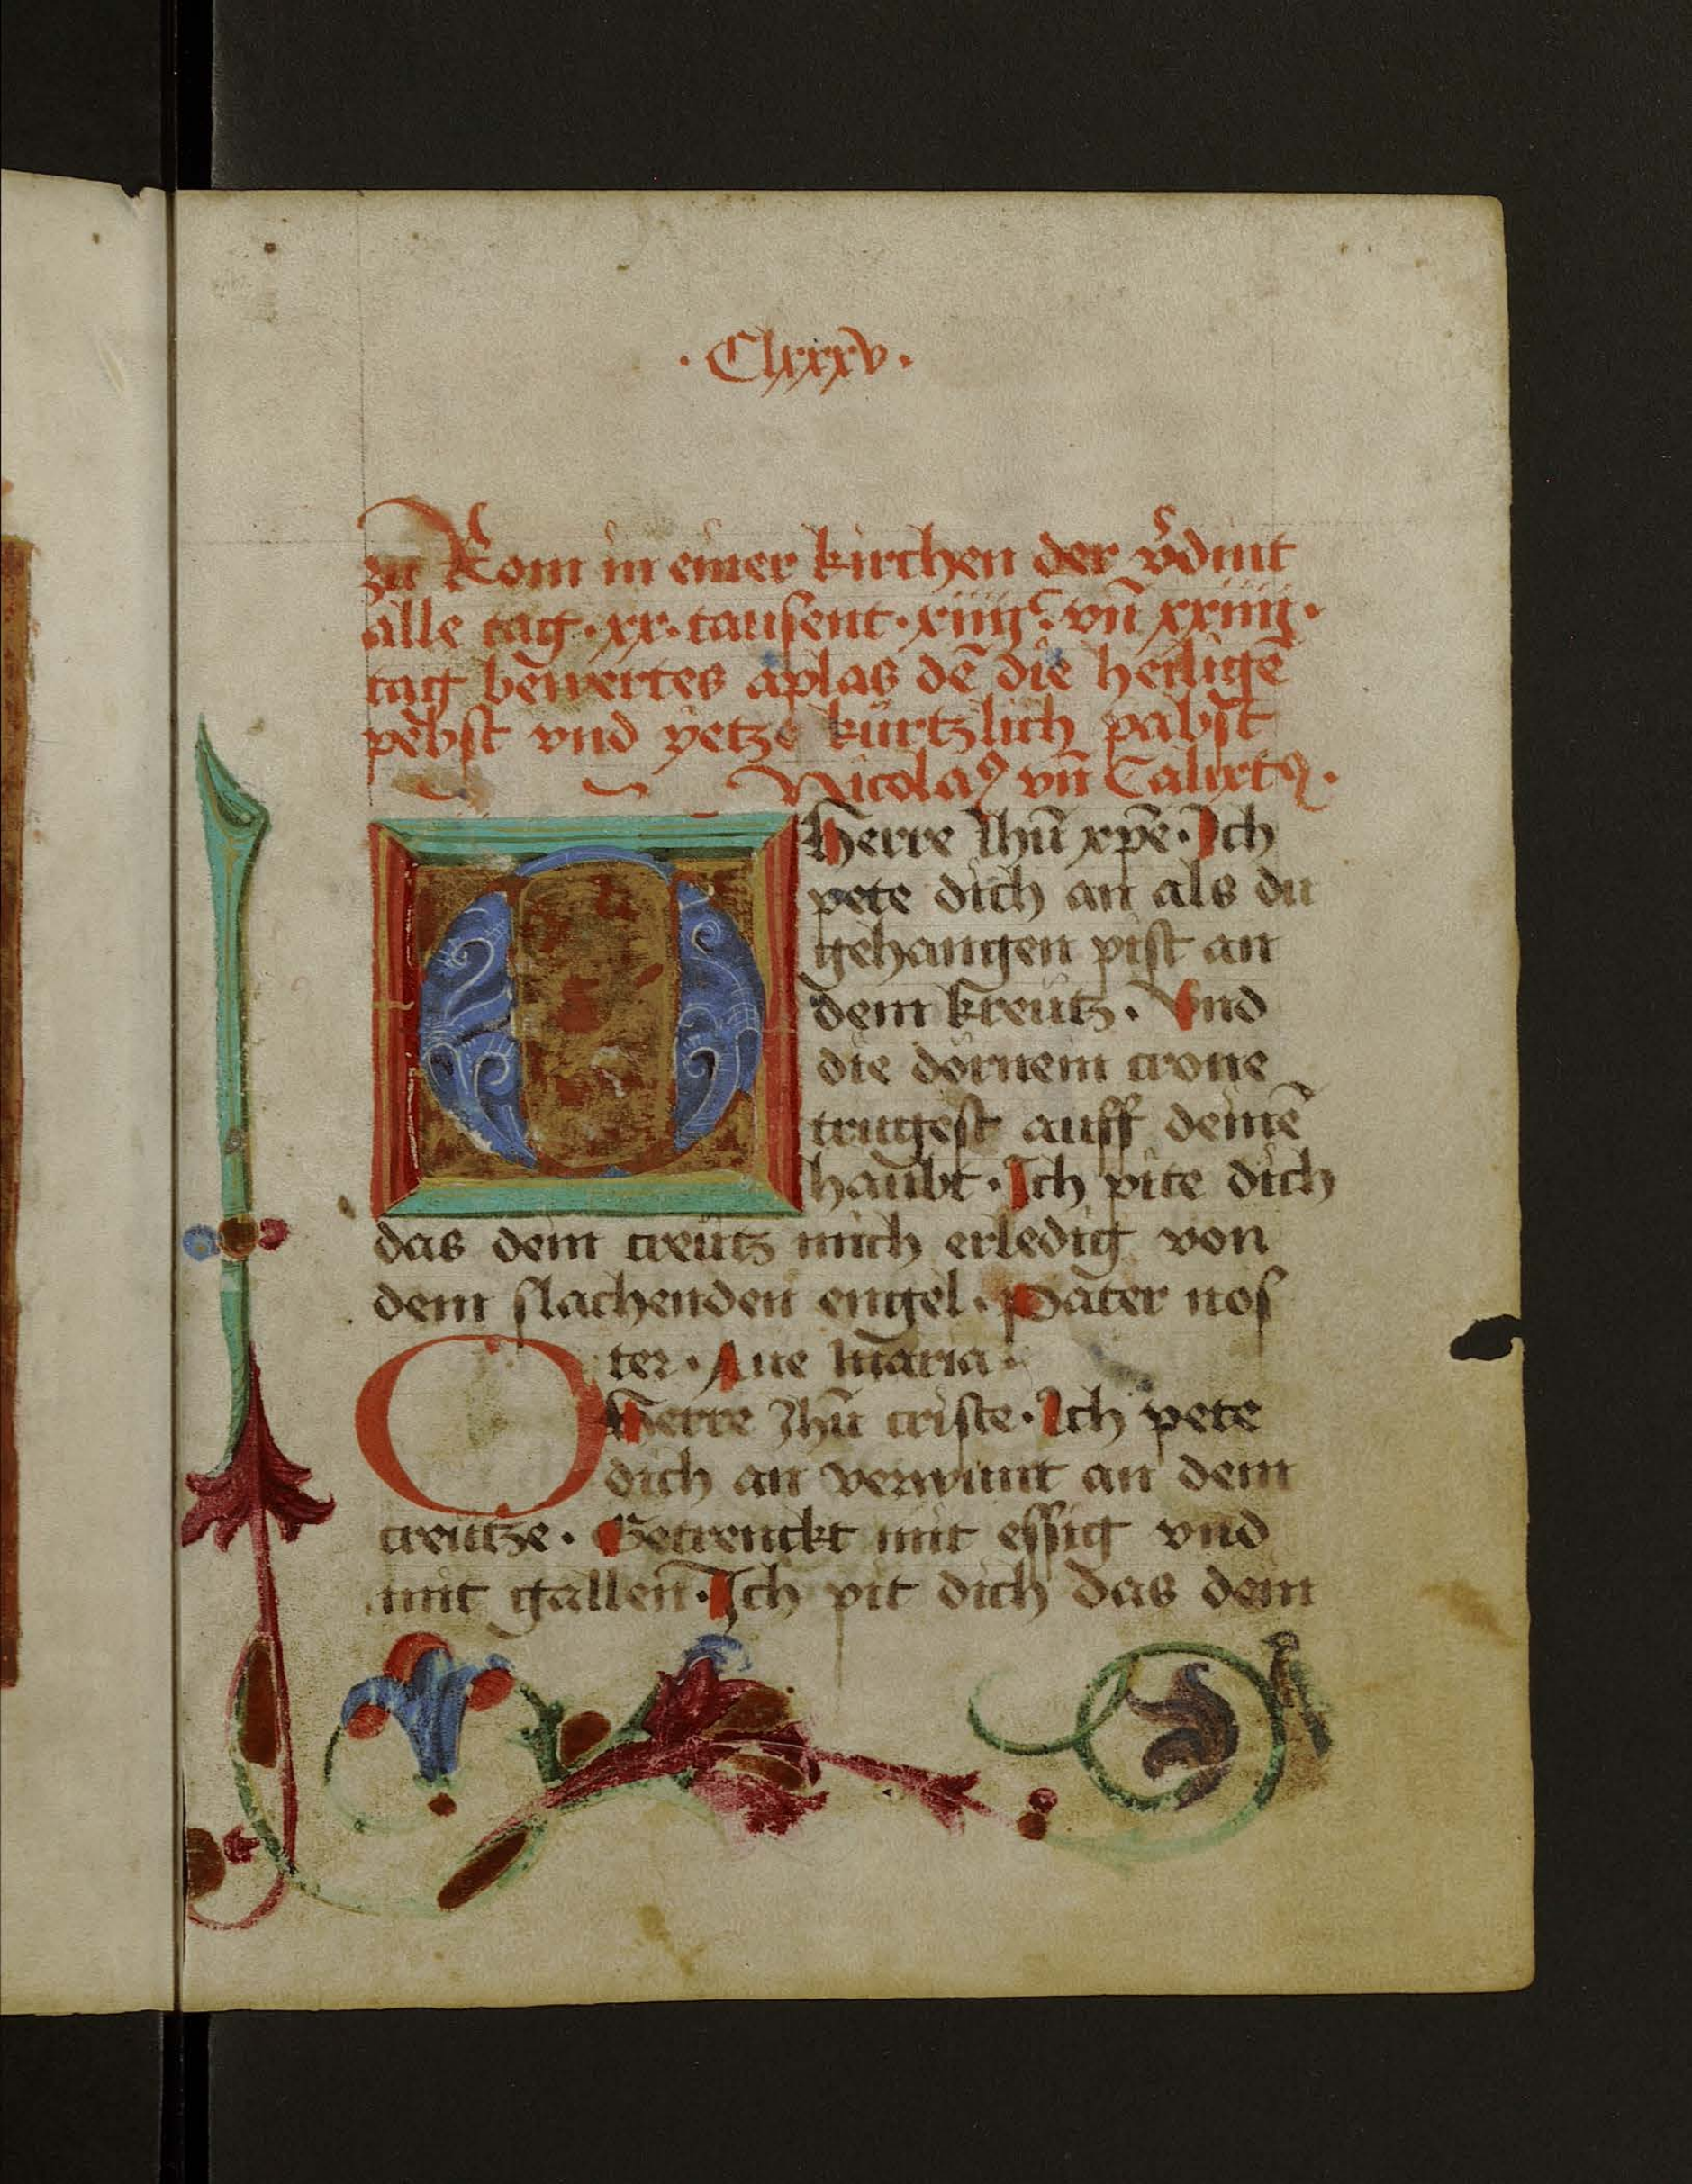 · Clxxxv ·
zu Rom in einer kirchen der v̄dint
alle tag · xx · tausent · xiiijᶜ · vn̄ xxiiij ·
tag bewertes aplas dē die heiligē
pebst vnd yetze kürtzlich pabst
Nicolaꝰ vn̄ Calixtꝰ ·
O Herre Jhū xp̄e · Ich
pete dich an als du
gehangen pist an
dem kreütz · Vnd
die dörnein crone
trugest auff deinē
haubt · Ich pite dich
das dein creütz mich erledig von
dem slachenden engel · Pater nos
ter · Aue maria ·
O Herre Jhū criste · Ich pete
dich an verwunt an dem
creutze · Getrenckt mit essig vnd
mit gallen · Ich pit dich das dein